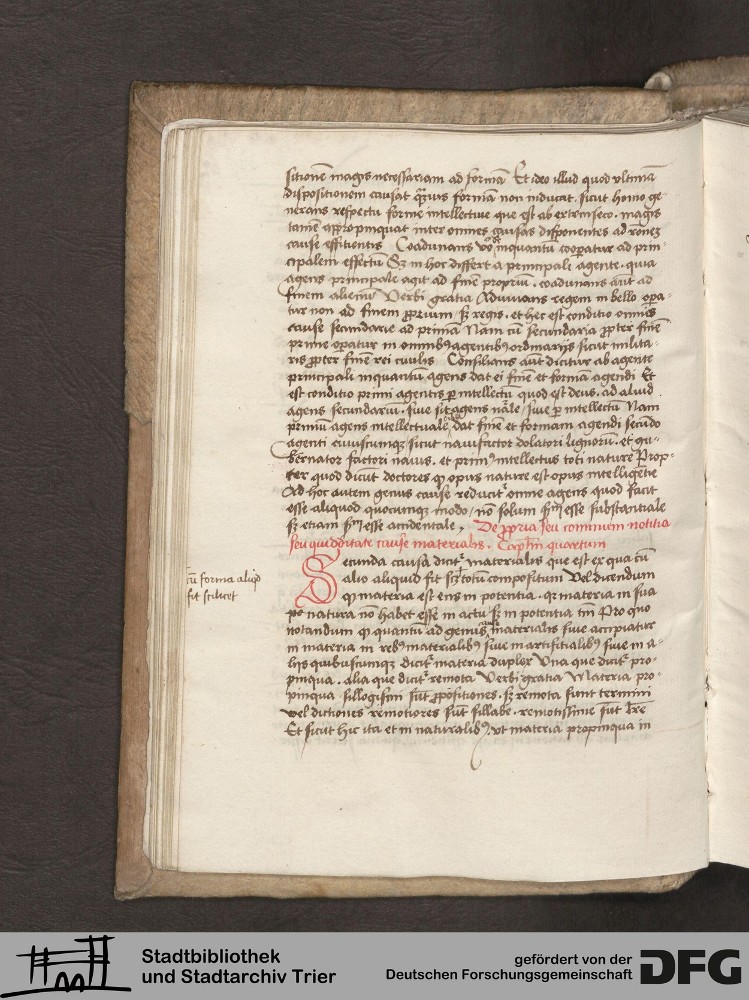 sitionē magis necessariam ad formā Et ideo illud quod vltimā
dispositionem causat qͣuis formā non inducat. sicut homo ge
nerans respectu forme intellectiue que est ab extrinseco. magis
tamē appropinquat inter omnes causas disponentes ad rōnez
cause efficientis Coadunans vͦo inquantū cooperatur ad prin
cipalem effectū Sz in hoc differt a principali agente. quia
agens principale agit ad finē propriū. coadunans aūt ad
finem alienū Verbi gratia Adiuuans regem in bello opa
tur non ad finem ꝓprium sz regis. et hec est conditio omnis
cause secundarie ad primā Nam cū secundaria ꝓpter finē
prime opatur in omnibꝫ agentibꝫ ordinarijs sicut milita
ris ꝓpter finē rei ciuilis Consilians aūt dicitur ab agente
principali inquantū agens dat ei finē et formā agendi Et
est conditio primi agentis ꝑ intellectū quod est deus. ad aliud
agens secundariū. siue sit agens nāle siue ꝑ intellectū Nam
primū agens intellectuale dat finē et formam agendi secūdo
agenti cuiuscumqꝫ sicut nauisfactor dolatori lignorū. et gu
bernator factori nauis. et primꝰ intellectus toti nature Prop
ter quod dicūt doctores ꝙ opus nature est opus intelligētie
Ad hoc autem genus cause reducitᷣ omne agens quod facit
esse aliquod quocumqꝫ modo / nō solum scdm esse substantiale
sz etiam scdm esse accidentale. De ꝓpria seu communi notitia
seu quidditate cause materialis. Capitlm quartum
Secunda causa dicitᷣ materialis que est ex qua cū
alio aliquid fit scz totū compositum Vel dicendum
ꝙ materia est ens in potentia. qꝫ materia in sua
natura nō habet esse in actu sz in potentia tm̄ Pro quo
notandum ꝙ quantū ad genus cause materialis siue accipiatur
in materia in rebꝫ materialibꝫ siue in artificialibꝫ siue in a
liis quibuscumqꝫ dicitᷣ materia duplex Vna que dicitᷣ pro
pinqua. alia que dicitᷣ remota Verbi gratia Materia pro
pinqua sillogismi sūt ꝓpositiones. sz remota sunt termini
vel dictiones remotiores sūt sillabe. remotissime sūt lr̄e
Et sicut hic ita et in naturalibꝫ. vt materia propinqua in
cū forma aliqd
fit scilicet
Stadtbibliothek
und Stadtarchiv Trier
gefördert von der
Deutschen Forschungsgemeinschaft
DFG